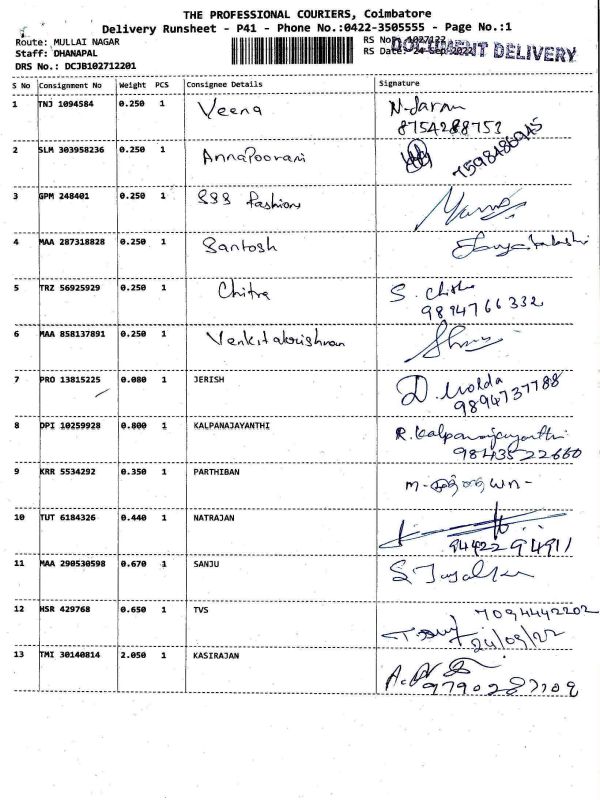 THE PROFESSIONAL COURIERS, Coimbatore
Delivery Runsheet - P41 - Phone No.:0422-3505555 - Page No.:1
Route: MULLAI NAGAR RS No.: 1027122
Staff: DHANAPAL RS Date: 24-Sep-2022
DOCUMENT DELIVERY
DRS No.: DCJB102712201
S No Consignment No Weight PCS Consignee Details Signature
1 TNJ 1094584 0.250 1 Veena N. Saran
8754288753
2 SLM 303958236 0.250 1 AnnaPoorani 7598486945
3 GPM 248401 0.250 1 SSS fashions
4 MAA 287318828 0.250 1 Santosh
5 TRZ 56925929 0.250 1 Chitra S. Chitra
9894766332
6 MAA 858137891 0.250 1 Venkitakrishnan
7 PRO 13815225 0.080 1 JERISH
9894737788
8 DPI 10259928 0.800 1 KALPANAJAYANTHI R. Kalpanajayanthi
9843522660
9 KRR 5534292 0.350 1 PARTHIBAN
10 TUT 6184326 0.440 1 NATRAJAN
9442294911
11 MAA 290530598 0.670 1 SANJU
12 HSR 429768 0.650 1 TVS 7094442202
24/09/22
13 TMI 30140814 2.050 1 KASIRAJAN